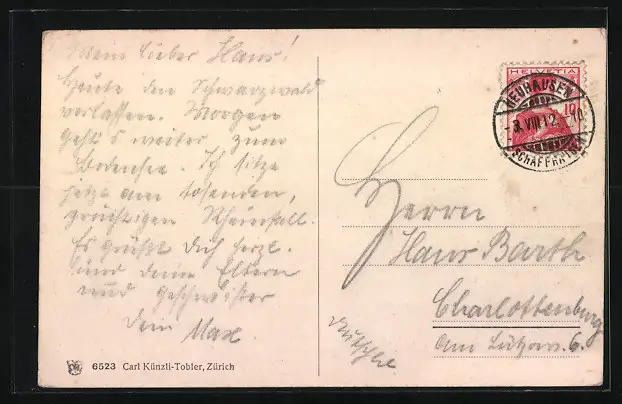 Mein lieber Hans!
Heute den Schwarzwald
verlassen. Morgen
geht's weiter zum
Bodensee. Ich sitze
jetzt am tosenden,
prächtigen Rheinfall.
Es grüßt Dich herzl.
und deine Eltern
und Geschwister
dein Max
6523 Carl Künzli-Tobler, Zürich
HELVETIA
10
NEUHAUSEN
VIII 12
(SCHAFFHAUSEN)
Herrn
Hans Barth
Charlottenburg
Am Lützow. 6.